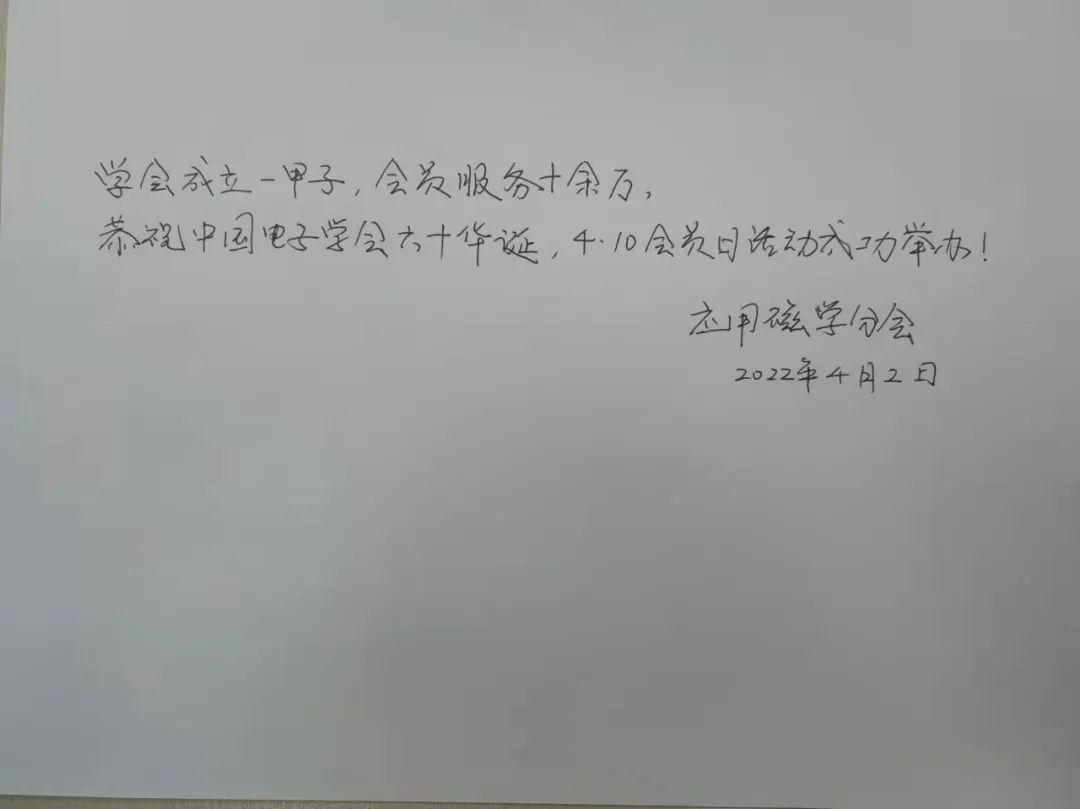 学会成立一甲子，会员服务十余万，
恭祝中国电子学会六十华诞，4·10会员日活动成功举办！
应用磁学分会
2022年4月2日